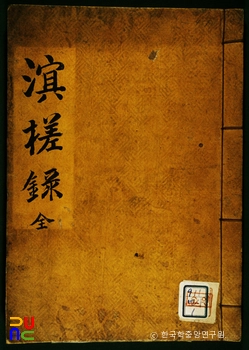 滇槎錄
全
© 한국학중앙연구원